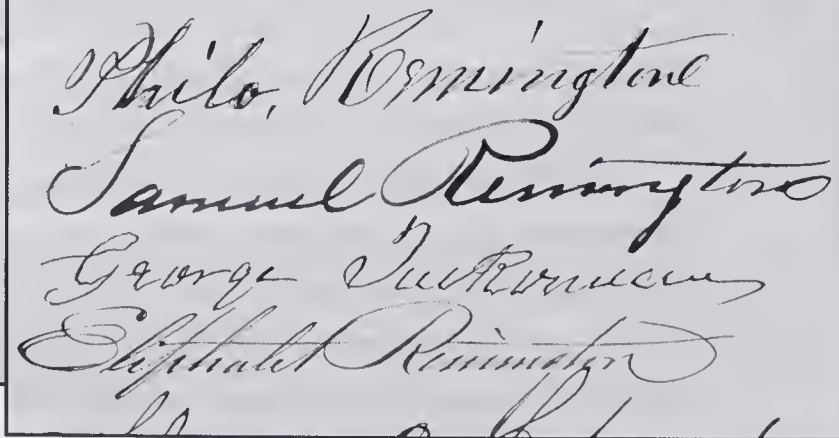 Philo, Remington
Samuel Remington
George
Eliphalet Remington